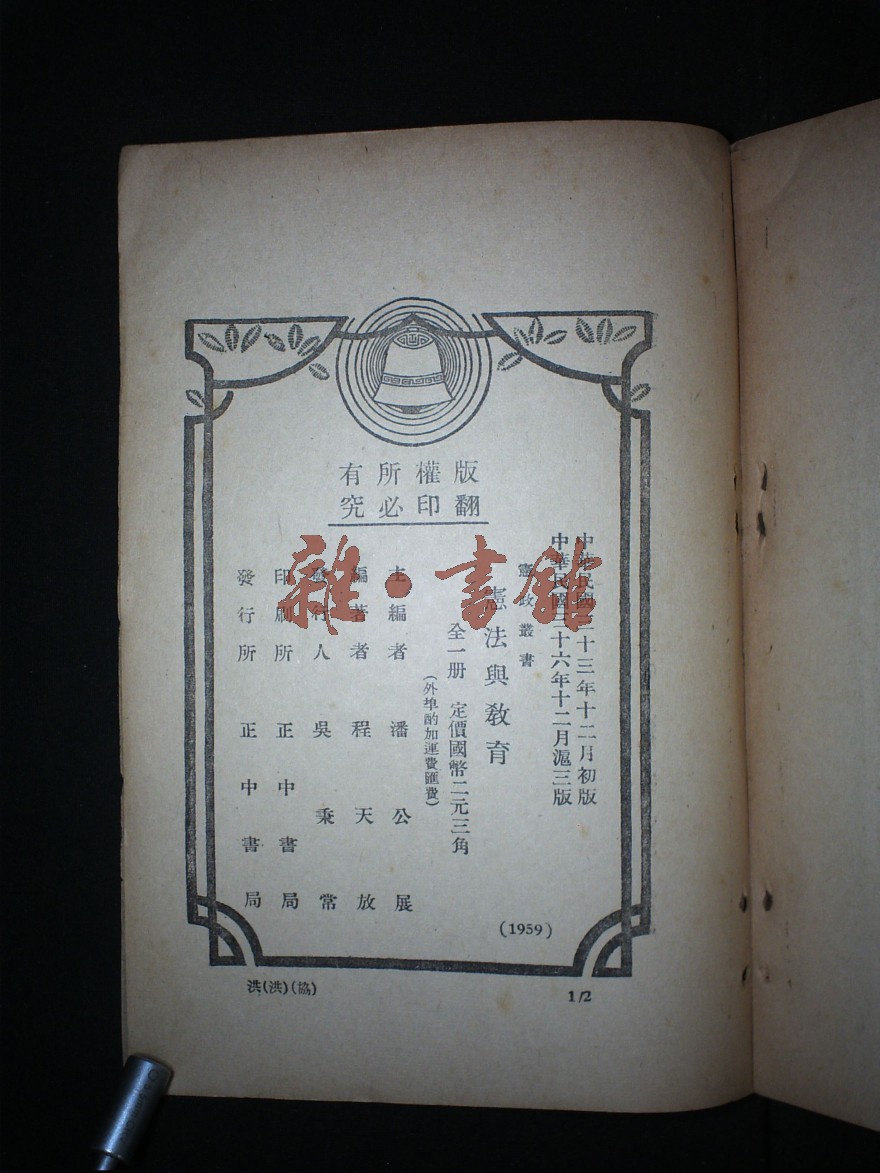 版權所有
翻印必究
中華民國三十三年十二月初版
中華民國三十六年十二月滬三版
憲政叢書
憲法與教育
全一册 定價國幣二元三角
(外埠酌加運費匯費)
主編者 潘公展
編著者 程天放
發行人 吳秉常
印刷所 正中書局
發行所 正中書局
(1959)
洪(洪)(協)
1/2
雜·書館